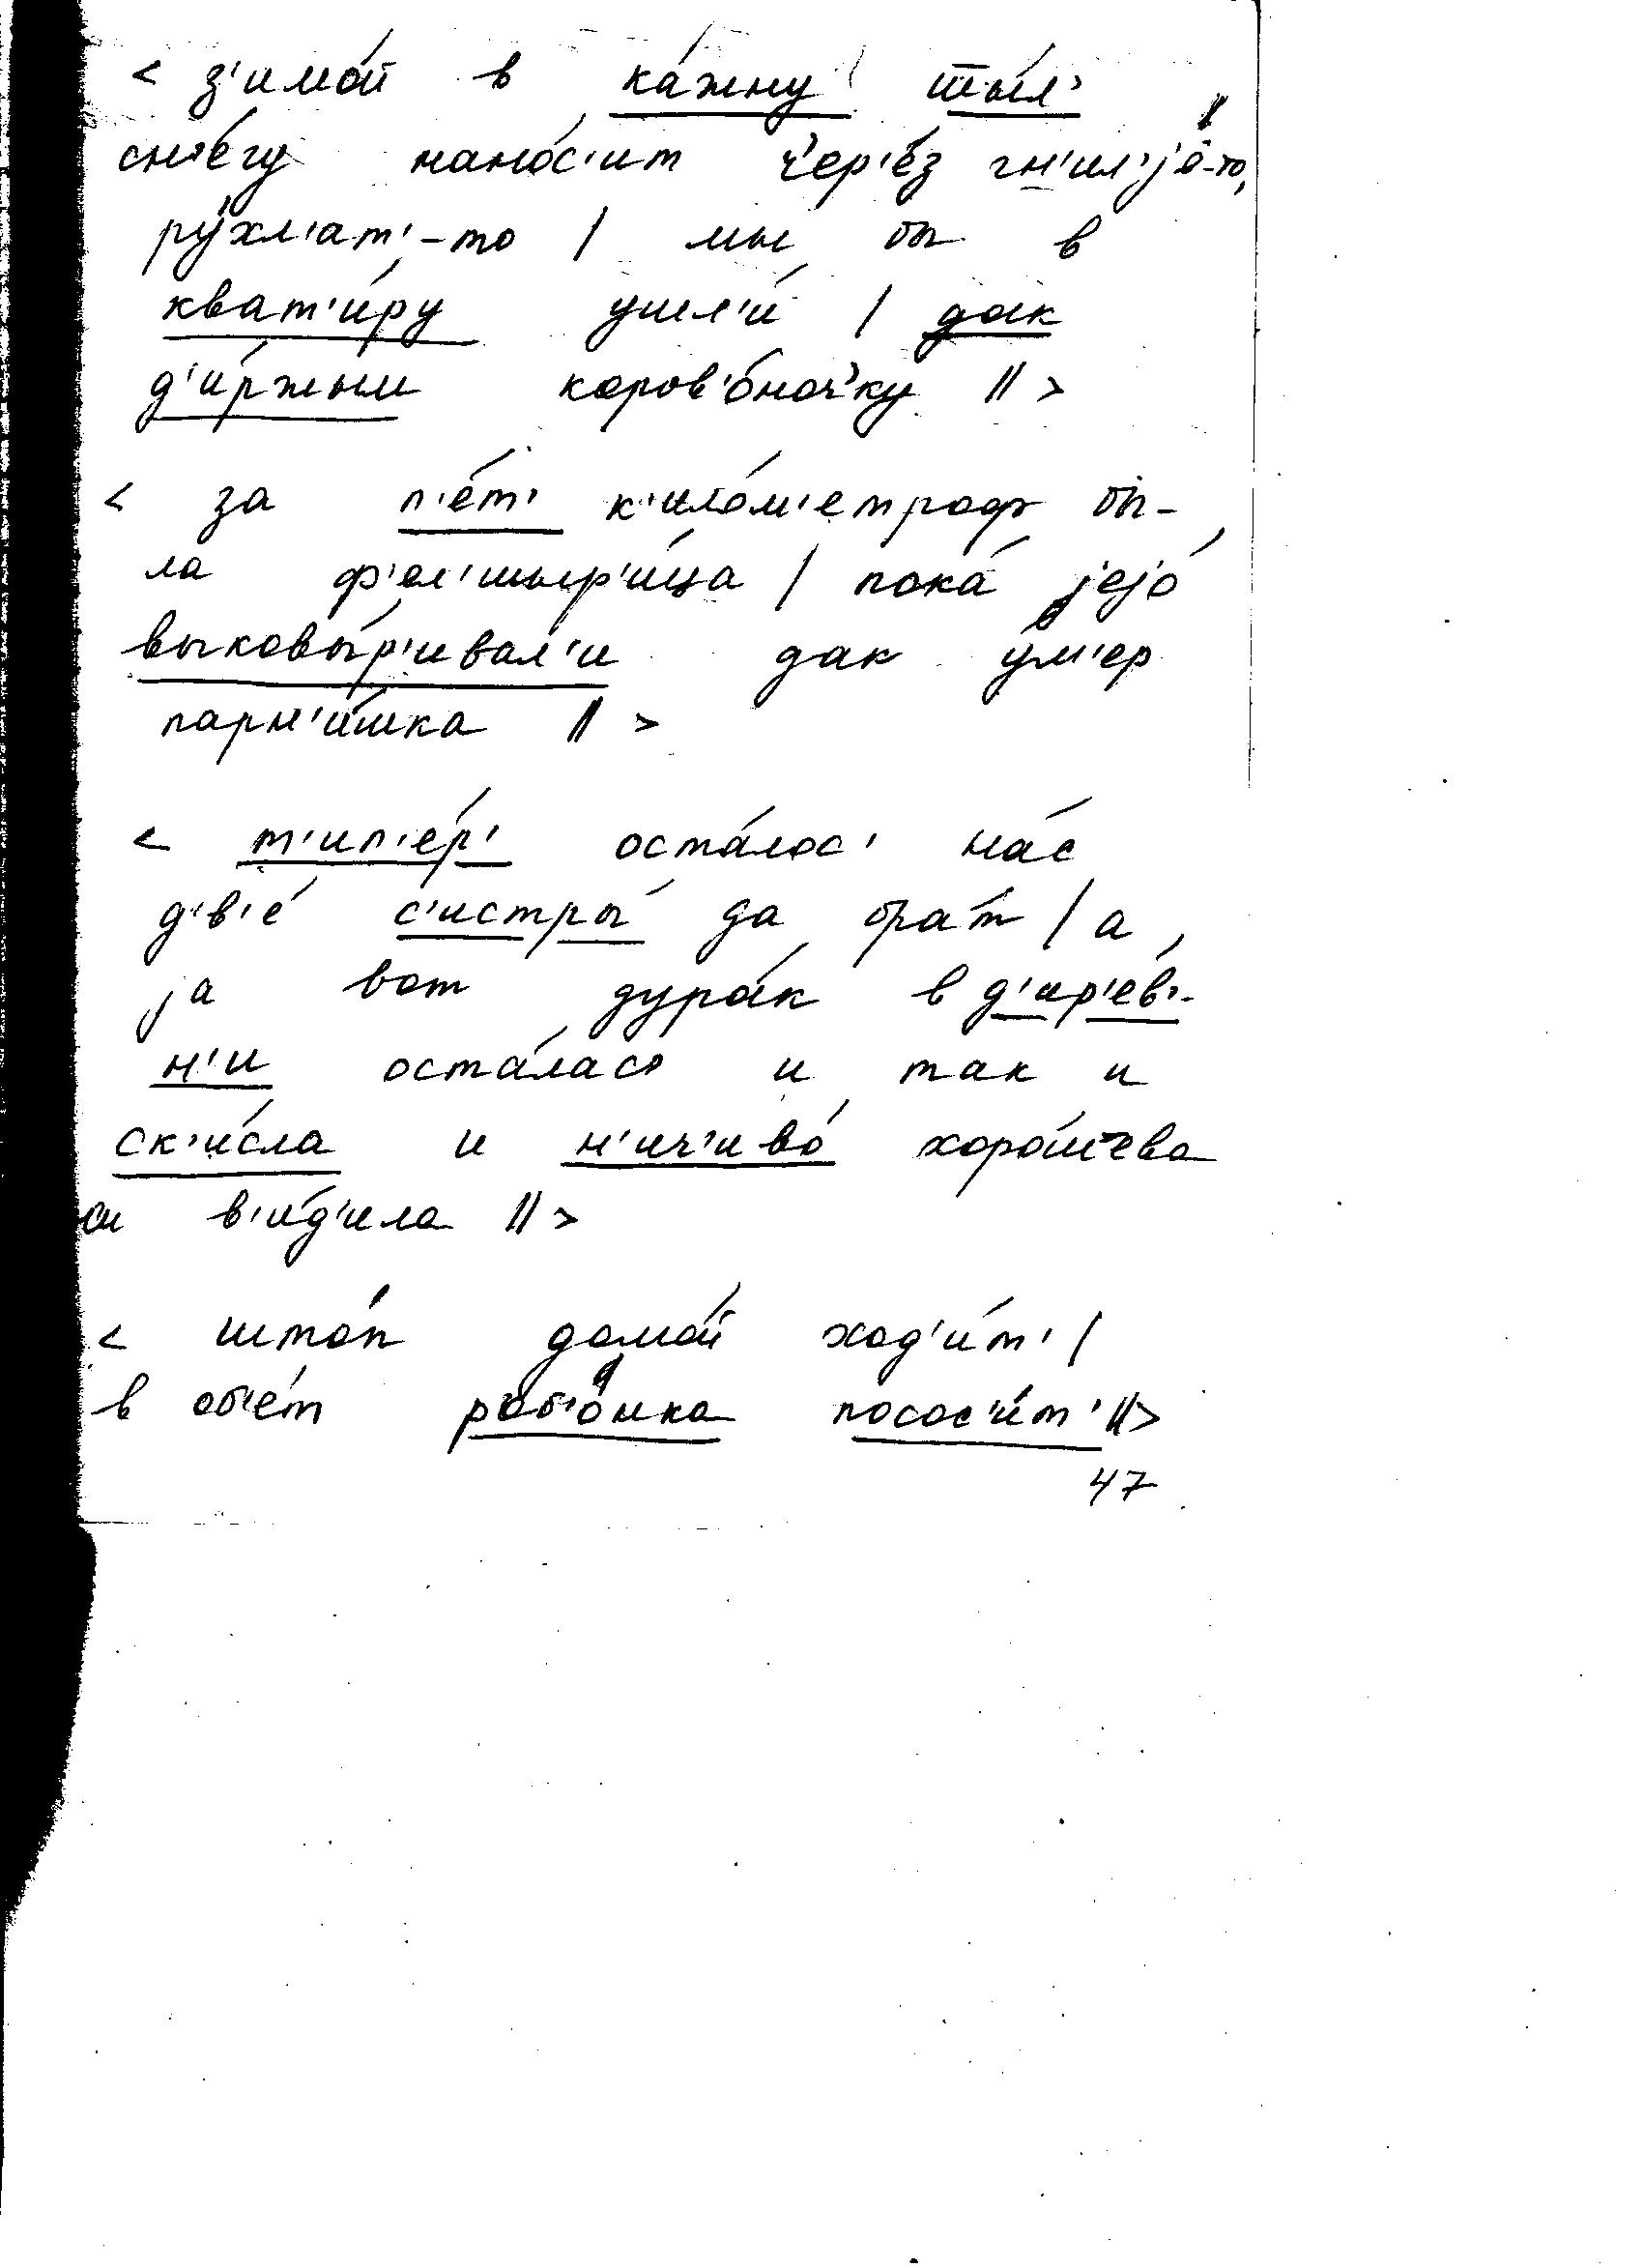 < з'имо́й в ка́жну шты́л'
сн'е́гу нано́с'ит ч'ер'е́з гн'ил'jо́-то,
ру́хл'ат'-то / мы бы в
кват'и́ру ушл'и́ / дак
д'и́ржым коров'о́ноч'ку || >
< за п'е́т' к'ило́м'етроф бы-
ла ф'ел'шыр'и́ца / пока́ jejо́
выковы́р'ивал'и дак у́м'ер
парн'и́шка || >
< т'ип'е́р' оста́лос' на́с
д'в'е́ с'истры́ да бра́т / а
jа вот дура́к в д'ир'е́в'-
н'и оста́лас' и так и
ск'и́сла и н'ич'иво́ хоро́шева
н'и в'и́д'ила || >
< што́п домо́й ход'и́т' /
в об'е́т р'об'о́нка посос'и́т' || >
47